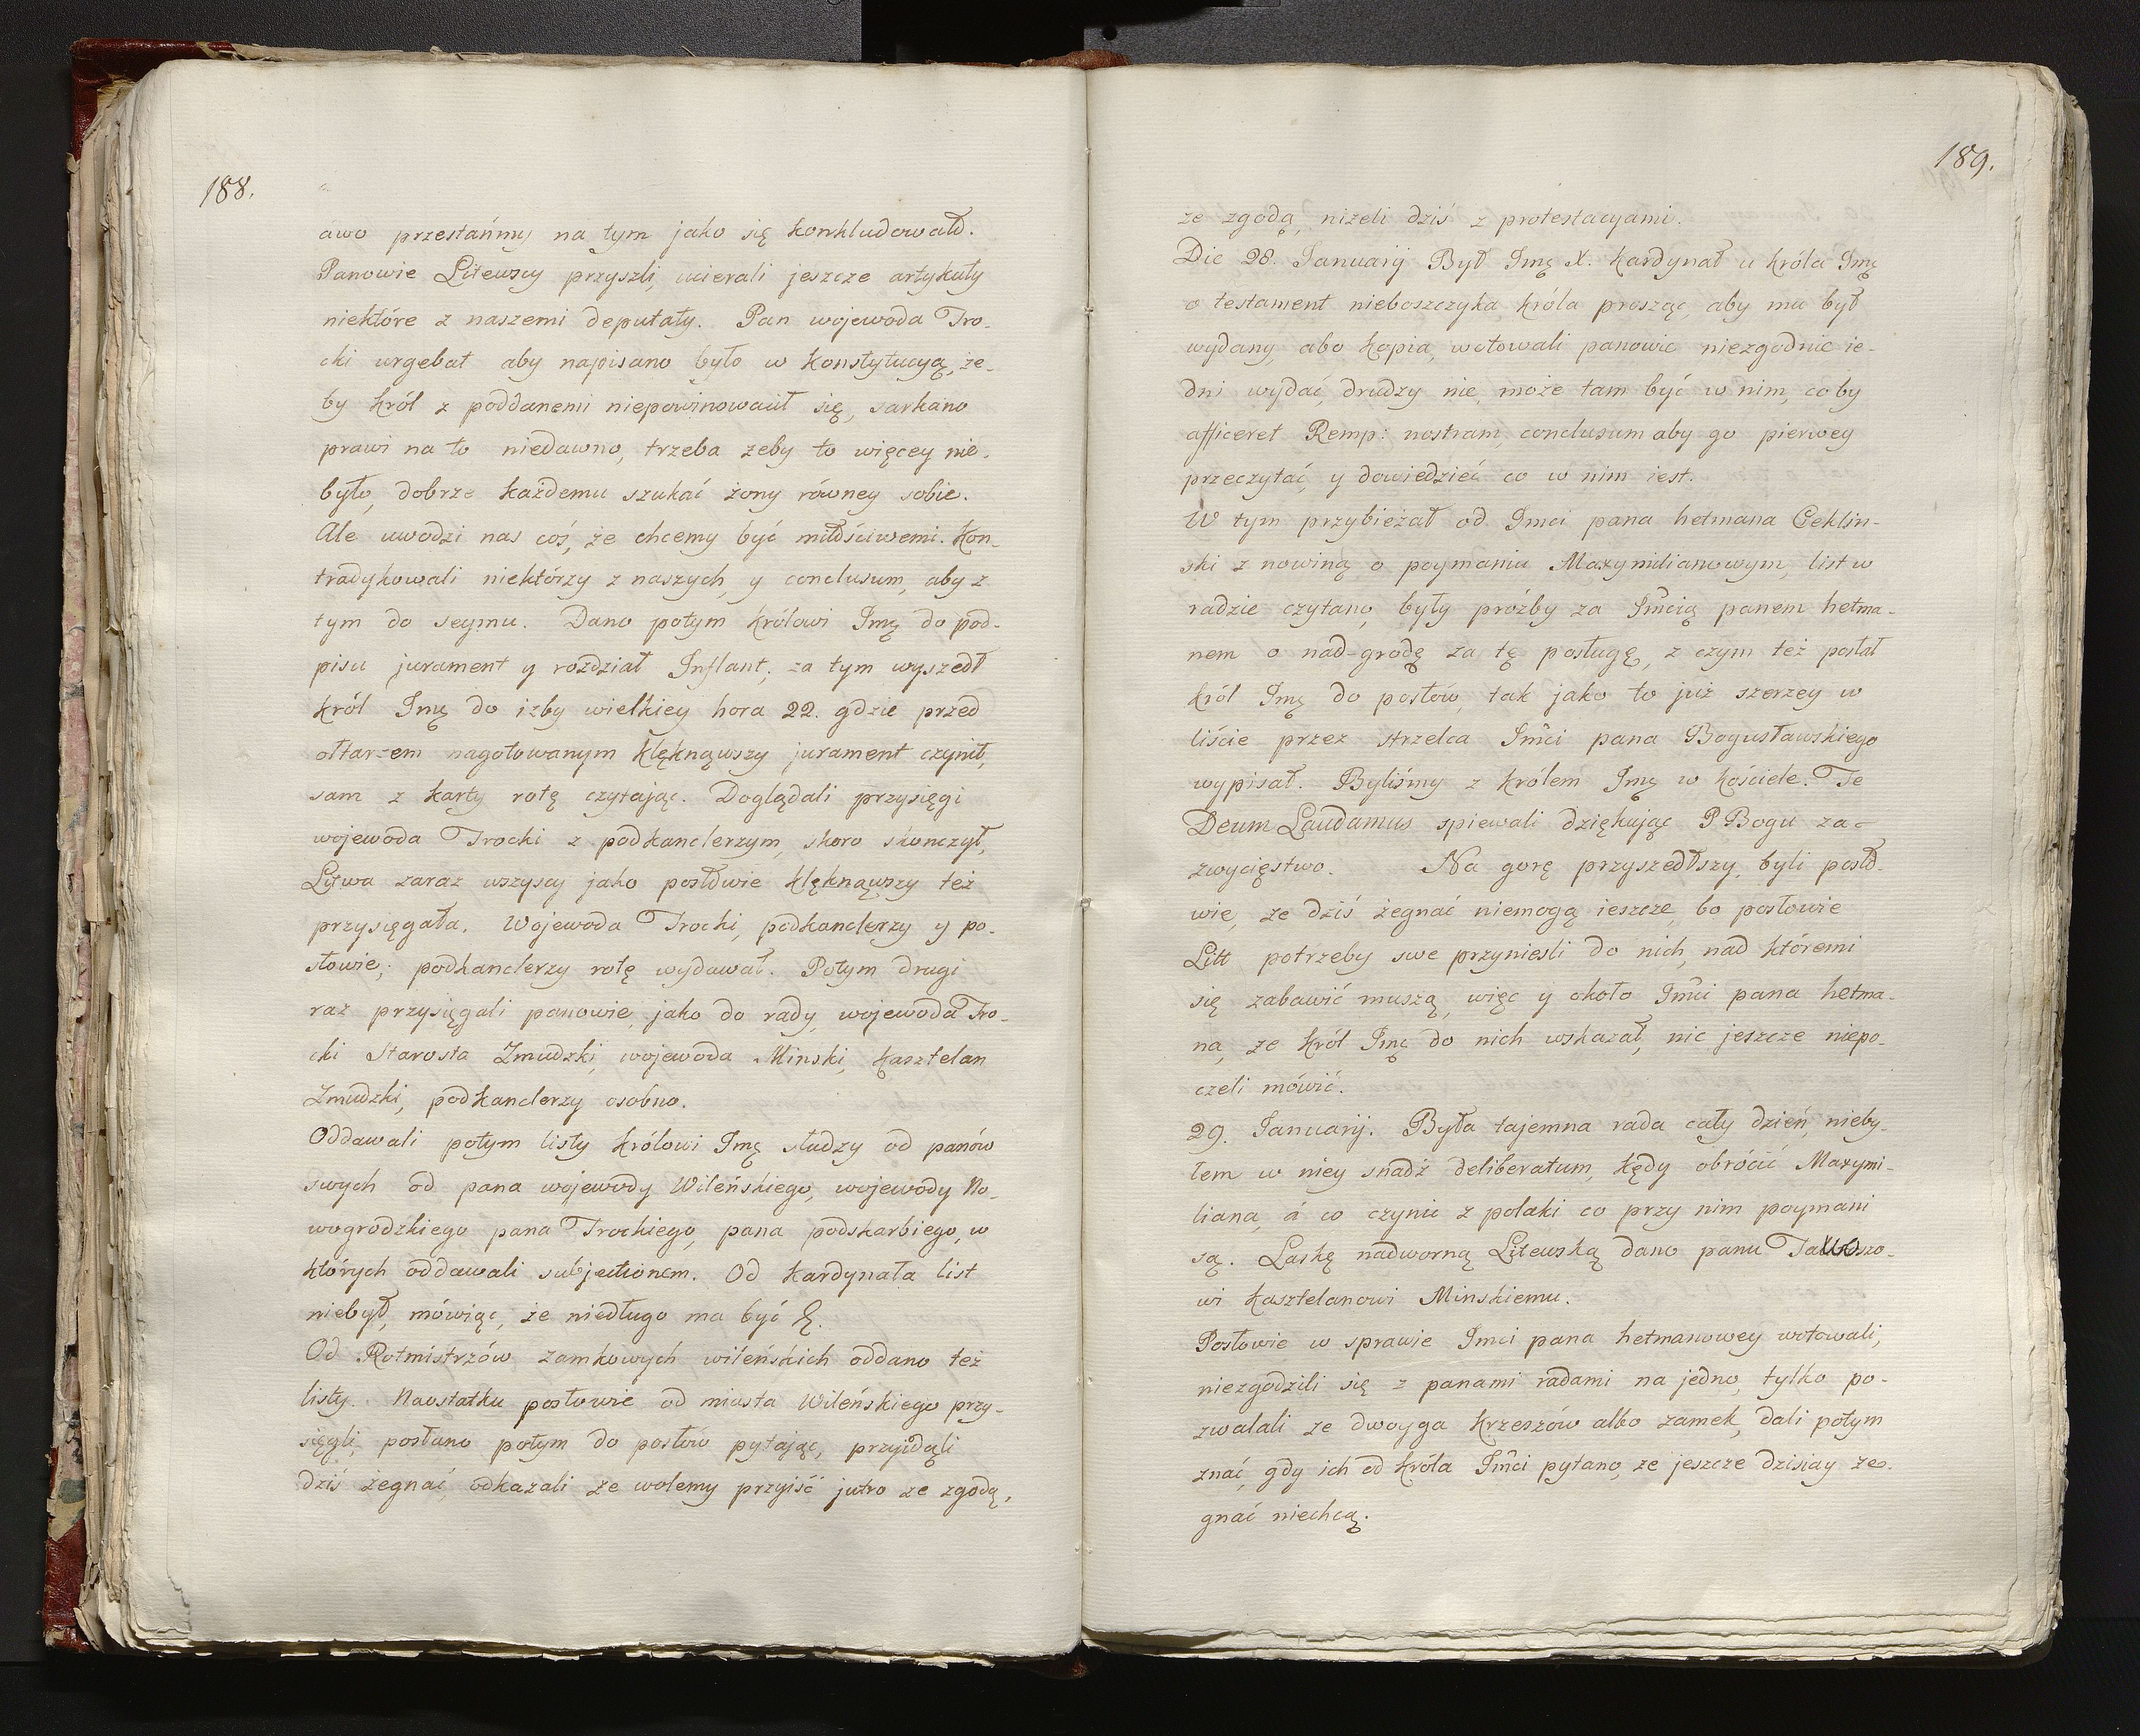 188.
awo przestańmy na tym jako się konkludowało.
Panowie Litewscy przyszli, ucierali jeszcze artykuły
niektóre z naszemi deputaty. Pan wojewoda Tro-
cki urgebat aby napisano było w konstytucyą, że-
by król z poddanemi niepowinowacił się, sarkano
prawi na to niedawno, trzeba żeby to więcey nie
było, dobrze każdemu szukać żony równey sobie.
Ale uwodzi nas coś, że chcemy być miłościwemi. Kon-
tradykowali niektórzy z naszych, y conclusum, aby z
tym do seymu. Dano potym królowi Jmę do pod-
pisu jurament y rozdział Inflant, za tym wyszedł
król Jmę do izby wielkiey hora 22. gdzie przed
ołtarzem nagotowanym klęknąwszy jurament czynił,
sam z karty rotę czytając. Doglądali przysięgi
wojewoda Trocki z podkanclerzym, skoro skonczył,
Litwa zaraz wszyscy jako posłowie klęknąwszy też
przysięgała. Wojewoda Trocki, podkanclerzy y po-
słowie, podkanclerzy rotę wydawał. Potym drugi
raz przysięgali panowie, jako do rady, wojewoda Tro-
cki Starosta Żmudzki, wojewoda Minski, Kasztelan
Żmudzki, podkanclerzy osobno.
Oddawali potym listy królowi Jmę słudzy od panów
swych od pana wojewody Wileńskiego, wojewody No-
wogrodzkiego pana Trockiego, pana podskarbiego, w
których oddawali subjectionem. Od Kardynała list
niebył, mówiąc, że niedługo ma być
Od Rotmistrzów zamkowych wileńskich oddano też
listy. Naostatku posłowie od miasta Wileńskiego przy-
sięgli, posłano potym do posłów pytając, przyidąli
dziś żegnać, odkazali że wolemy przyiść jutro ze zgodą,
189.
ze zgodą, niżeli dziś z protestacyami.
Die 28. Januarij Był Jmę X. Kardynał u króla Jmę
o testament nieboszczyka króla prosząc, aby mu był
wydany, abo kopia, wotowali panowie niezgodnie ie-
dni wydać, drudzy nie, może tam być w nim, coby
afficeret Remp: nostram, conclusum aby go pierwey
przeczytać, y dowiedzieć co w nim iest.
W tym przybieżał od Jmci pana hetmana Ceklin-
ski z nowiną o poymaniu Maxymilianowym, list w
radzie czytano, były prośby za Jmcią panem hetma-
nem o nad-grodę za tę posługę, z czym też posłał
król Jmę do posłów, tak jako to już szerzey w
liście przez strzelca Jmci pana Bogusławskiego
wypisał. Byliśmy z królem Jmę w kościele. Te
Deum Laudamus spiewali dziękując P Bogu za-
zwycięstwo. Na gorę przyszedłszy, byli posło-
wie, że dziś żegnać niemogą ieszcze, bo posłowie
Litt potrzeby swe przyniesli do nich, nad któremi
się zabawić muszą, więc y około Jmci pana hetma-
na, że król Jmę do nich wskazał, nic jeszcze niepo-
czeli mówić.
29. Januarij. Była tajemna rada cały dzień, nieby-
łem w niey snadź deliberatum, kędy obrócić Maxymi-
liana, á co czynić z polaki co przy nim poymani
są. Laskę nadworną Litewską dano panu Talwoszo-
wi Kasztelanowi Minskiemu.
Posłowie w sprawie Jmci pana hetmanowey wotowali,
niezgodzili się z panami radami na jedno, tylko po-
zwalali ze dwoyga Krzeszów albo zamek, dali potym
znać, gdy ich od króla Jmci pytano, że jeszcze dzisiay że-
gnać niechcą.